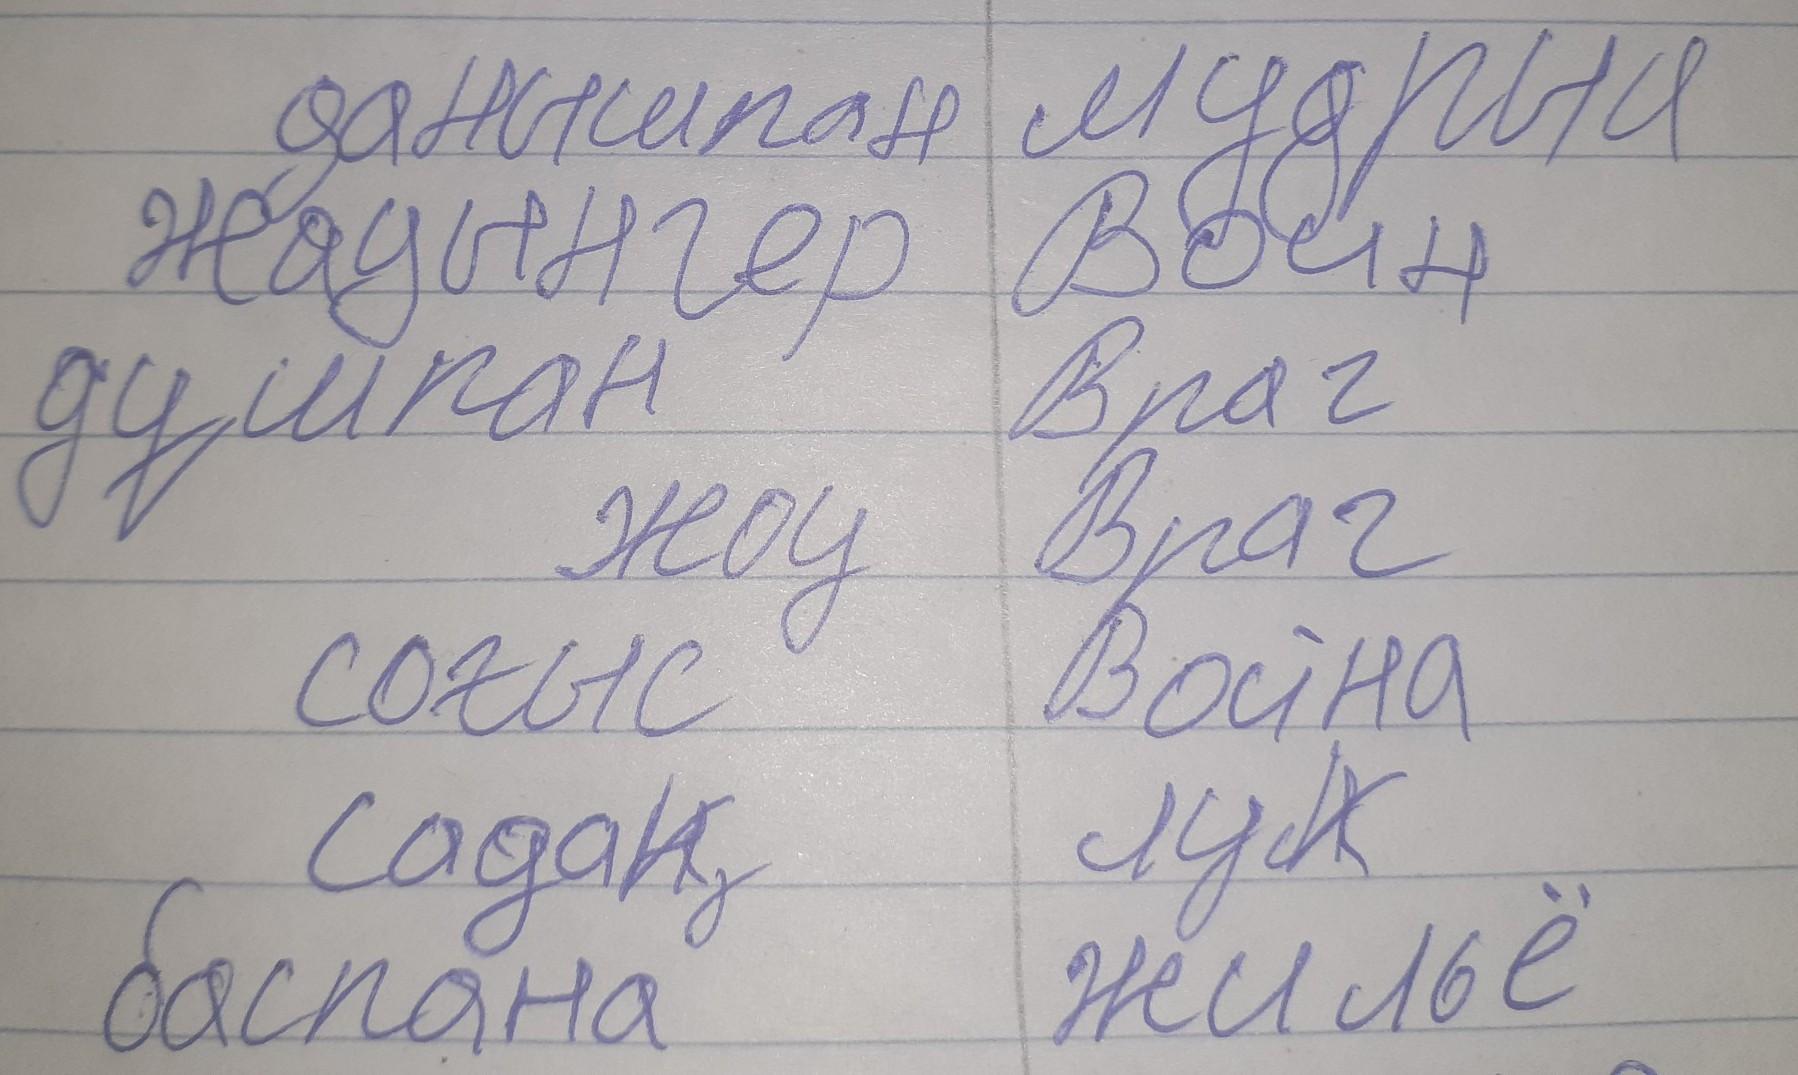 данышпан мудрый
жауынгер Воин
душпан Враг
жоу Враг
соғыс Война
садақ лук
баспана жильё